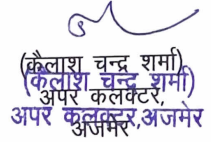 (कैलाश चन्द्र शर्मा)
(कैलाश चन्द्र शर्मा)
अपर कलक्टर,
अपर कलक्टर,अजमेर
अजमेर